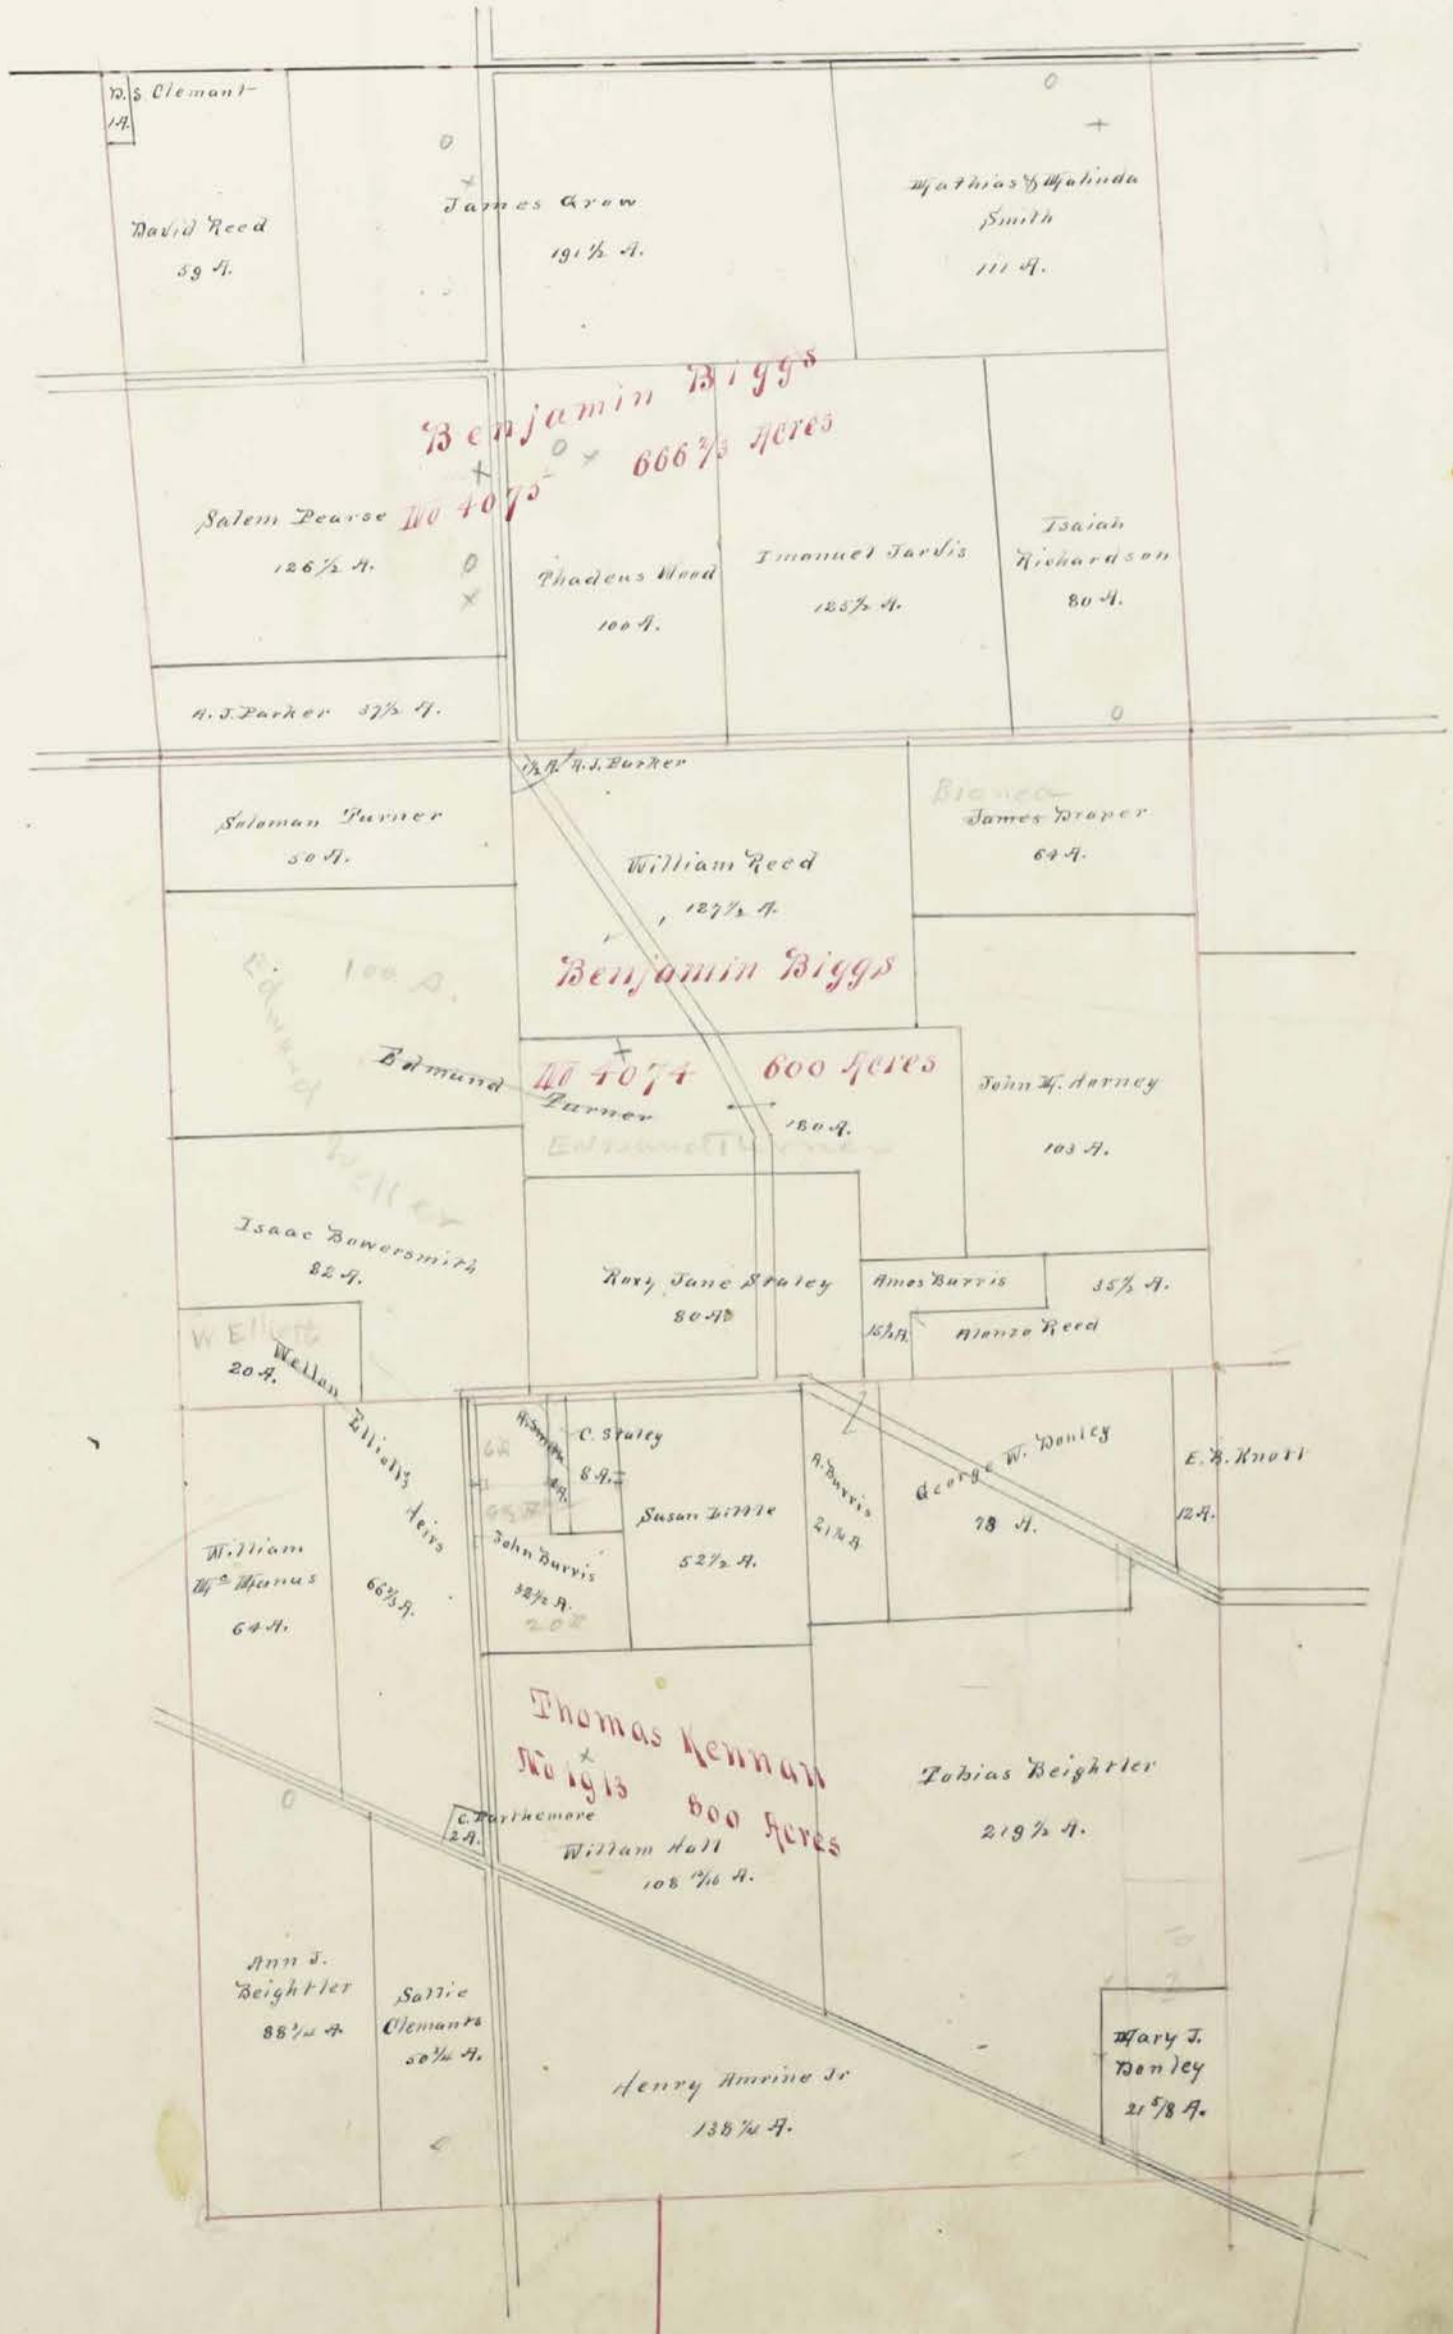 D. S. Clemant
1 A.
David Reed
59 A.
James Grow
191 1/2 A.
Mathias & Malinda
Smith
111 A.
Benjamin Biggs
No 4075 666 2/3 Acres
Salem Pearse
126 1/2 A.
Thadeus Wood
100 A.
Imanuel Jarvis
125 1/2 A.
Isaiah
Richardson
80 A.
A. J. Parker 37 1/2 A.
1/2 A. A. J. Parker
Soloman Turner
50 A.
William Reed
127 1/2 A.
James Draper
64 A.
Benjamin Biggs
No 4074 600 Acres
100 A.
Edmund
Edmund Turner
180 A.
Edmund Turner
Weller
John H. Harney
103 A.
Isaac Bowersmith
82 A.
Roxy Jane Staley
80 A.
Amos Burris
15 1/2 A.
35 1/2 A.
Alonzo Reed
W Elliott
20 A.
Wellan Elliott's Heirs
66 2/3 A.
A. Smith
C. Staley
8 A.
Susan Little
52 1/2 A.
A. Burris
George W. Donley
78 A.
E. B. Knott
12 A.
William
Mc Manus
64 A.
John Burris
32 1/2 A.
Thomas Kennan
No 1913 800 Acres
C. Parthemore
2 A.
Willam Hall
108 A.
Tobias Beightler
219 1/2 A.
Ann J.
Beightler
88 3/4 A.
Sallie
Clemants
50 3/4 A.
Henry Amrine Jr
138 1/4 A.
Mary J.
Donley
21 5/8 A.